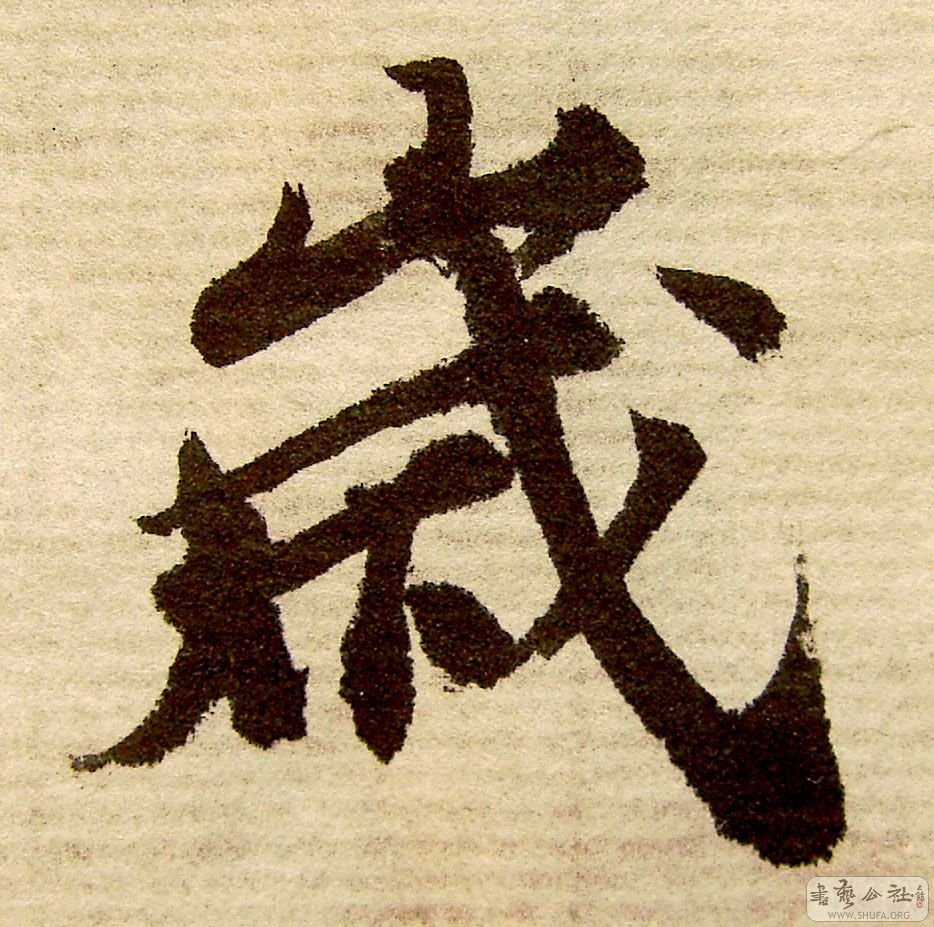 歳
書藝公社
WWW.SHUFA.ORG